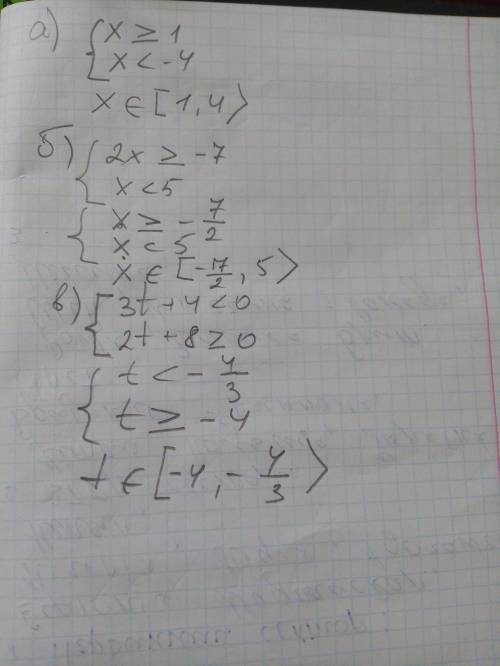 а) { x ≥ 1
x < -4
x ∈ [1, 4⟩
б) { 2x ≥ -7
x < 5
{ x ≥ -7/2
x < 5
x ∈ [-17/2, 5⟩
в) { 3t + 4 < 0
2t + 8 ≥ 0
{ t < -4/3
t ≥ -4
t ∈ [-4, -4/3⟩